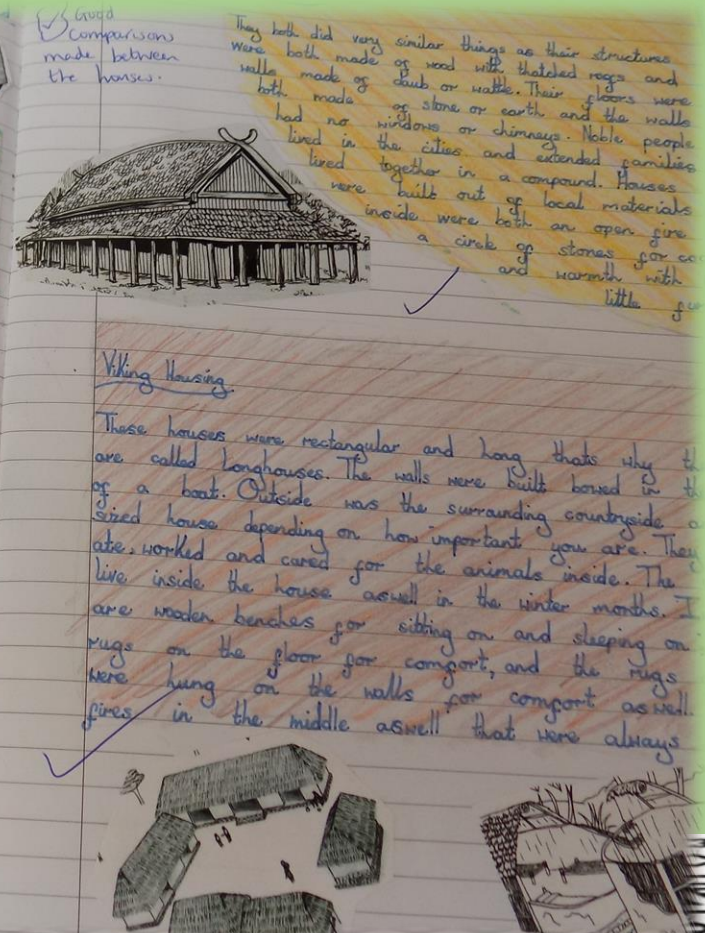 Good
comparisons
made between
the houses.
They both did very similar things as their structures
were both made of wood with thatched roofs and
walls made of daub or wattle. Their floors were
both made of stone or earth and the walls
had no windows or chimneys. Noble people
lived in the cities and extended families
lived together in a compound. Houses
were built out of local materials
inside were both an open fire
a circle of stones for co
and warmth with
little f
Viking Housing.
These houses were rectangular and long thats why th
are called longhouses. The walls were built bowed in th
of a boat. Outside was the surrounding countryside a
sized house depending on how important you are. They
ate, worked and cared for the animals inside. The
live inside the house aswell in the winter months. I
are wooden benches for sitting on and sleeping on
rugs on the floor for comfort, and the rugs
were hung on the walls for comfort aswell.
fires in the middle aswell that were always